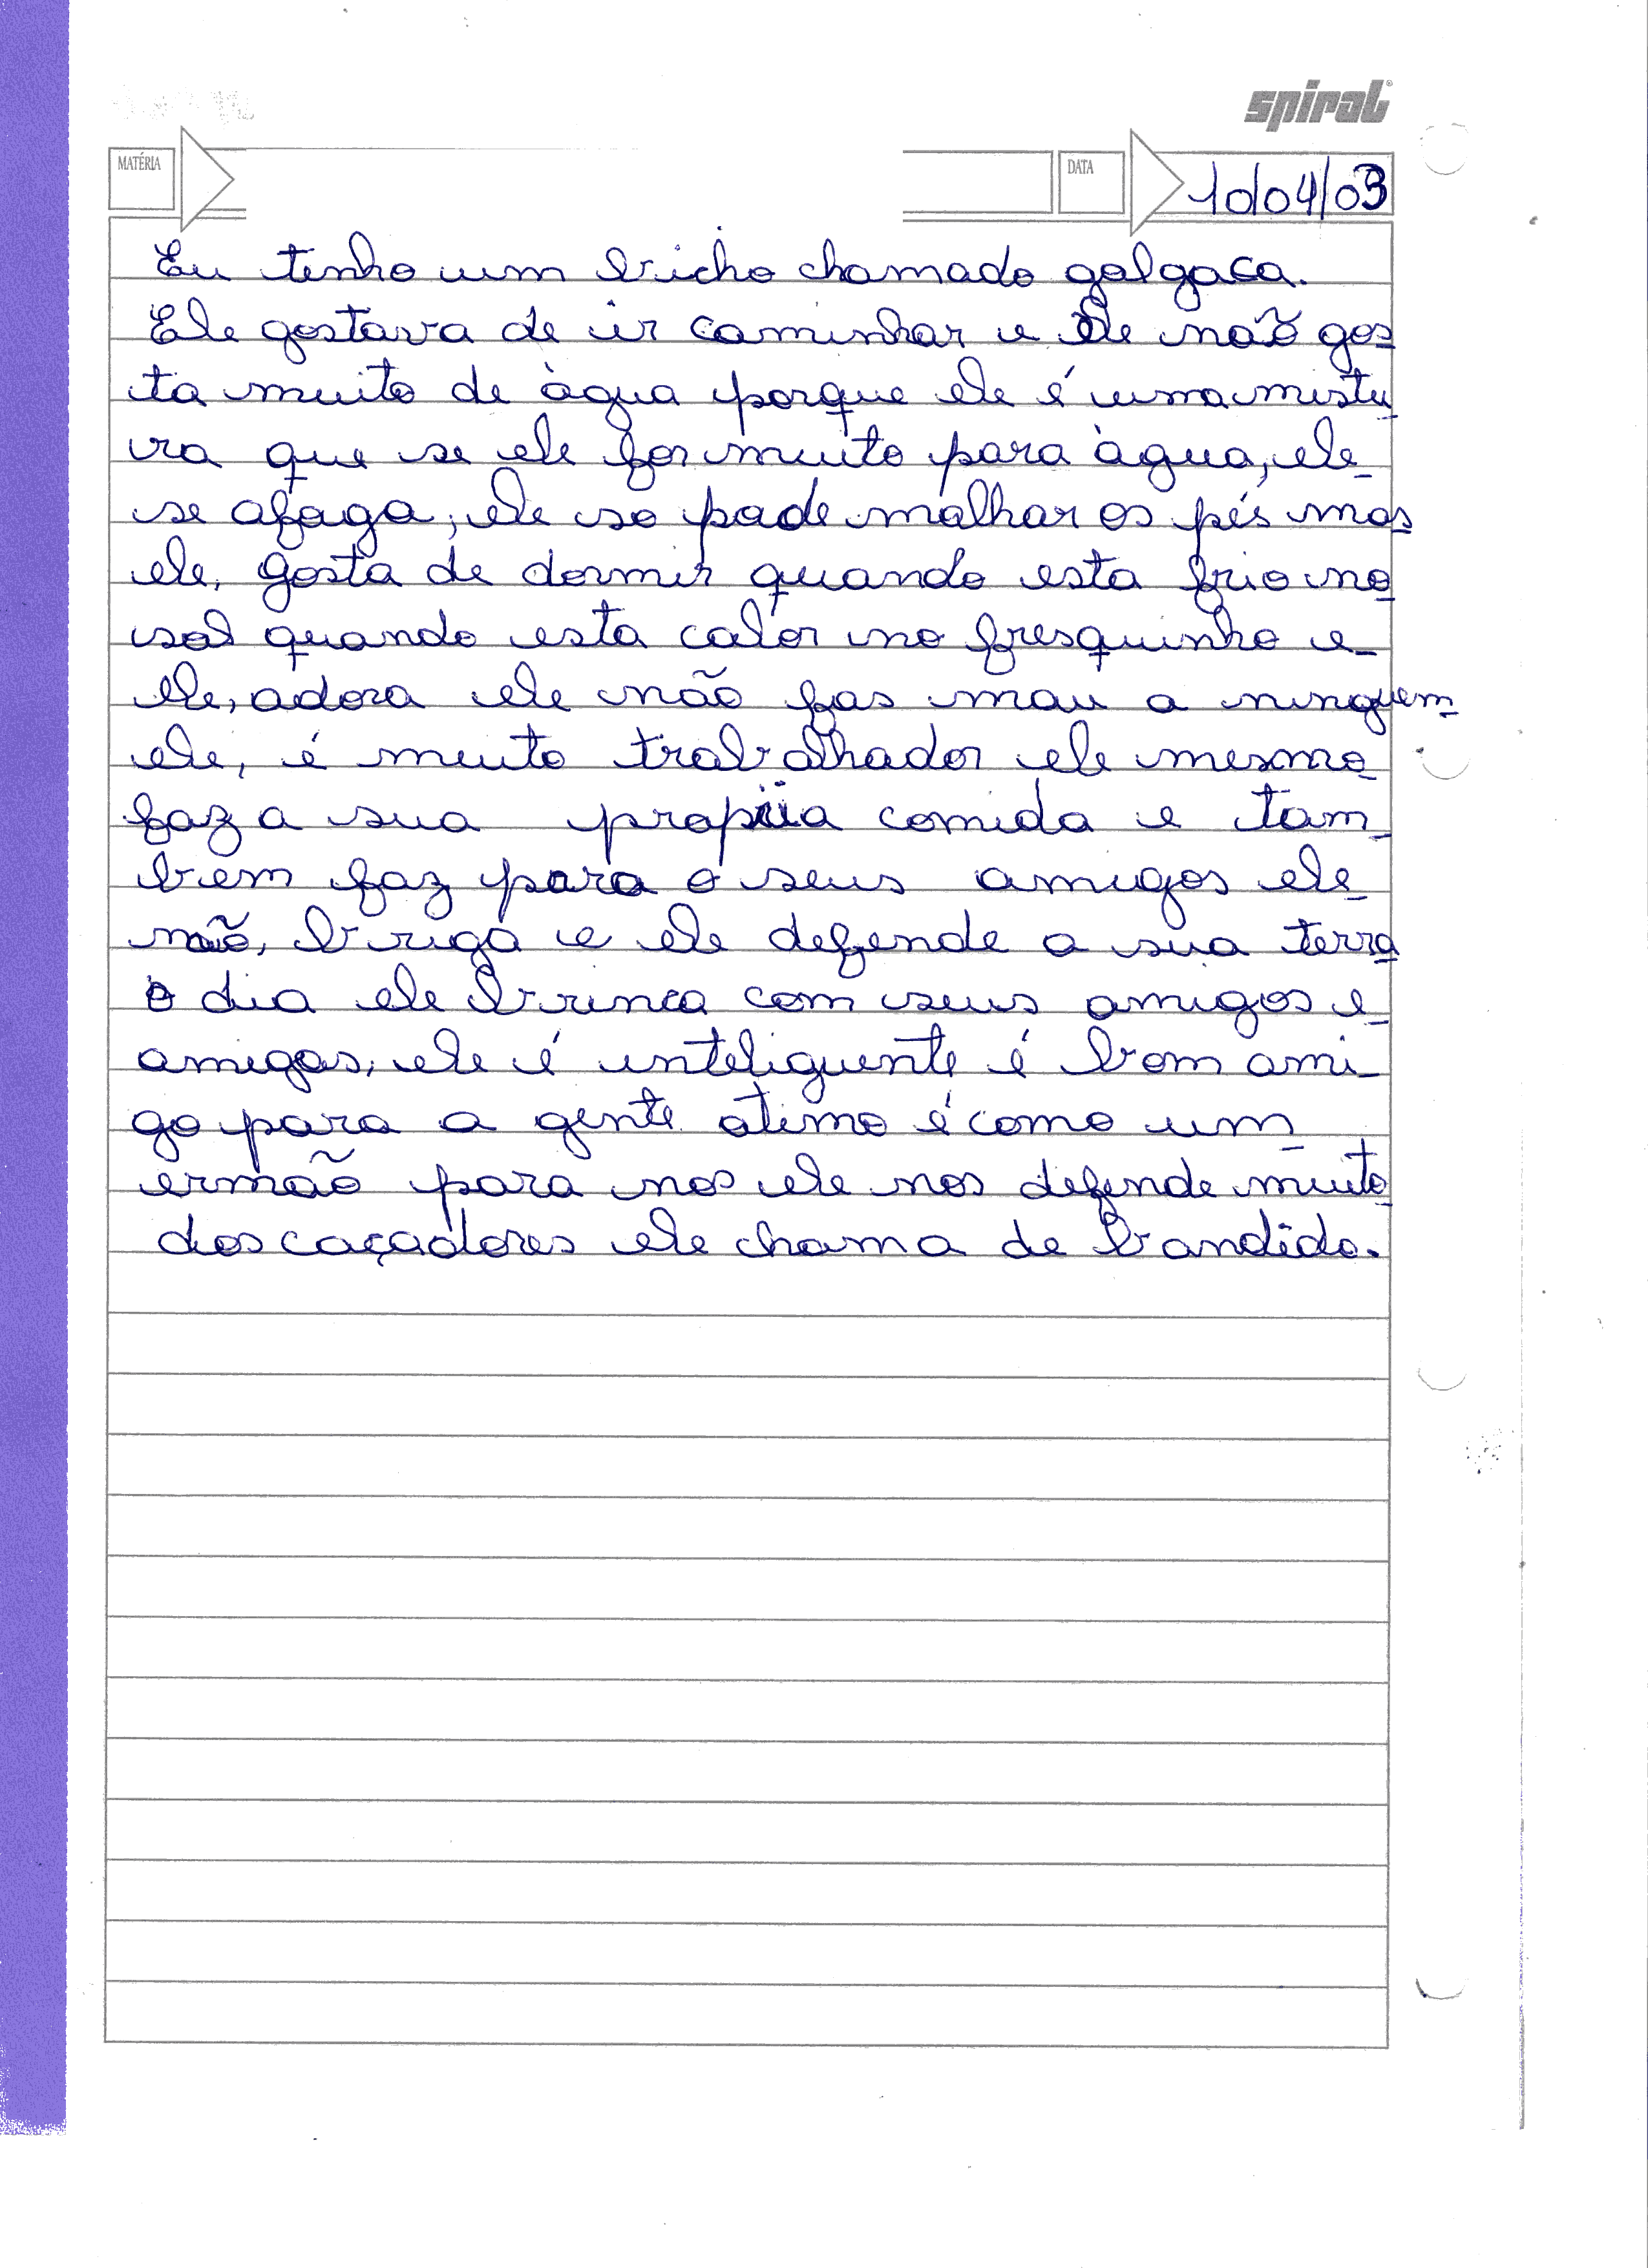 spiral
MATÉRIA
DATA 10/04/03
Eu tenho um bicho chamado galgaca.
Ele gostava de ir caminhar e ele não gos
ta muito de àgua porque ele é uma mistu
ra que se ele for muito para àgua, ele
se afaga, ele so pade malhar os pés mas
ele, gosta de dormir quando esta frio no
sol quando esta calor no fresquinho e
ele, adora ele não fas mau a ninguem
ele, é muito trabalhador ele mesmo
faz a sua propria comida e tam
bem faz para o seus amigos ele
não, briga e ele defende a sua terra
o dia ele brinca com seus amigos e
amigas, ele é inteliguente é bom ami
go para a gente otimo é como um
irmão para nos ele nos defende muito
dos caçadores ele chama de bandido.